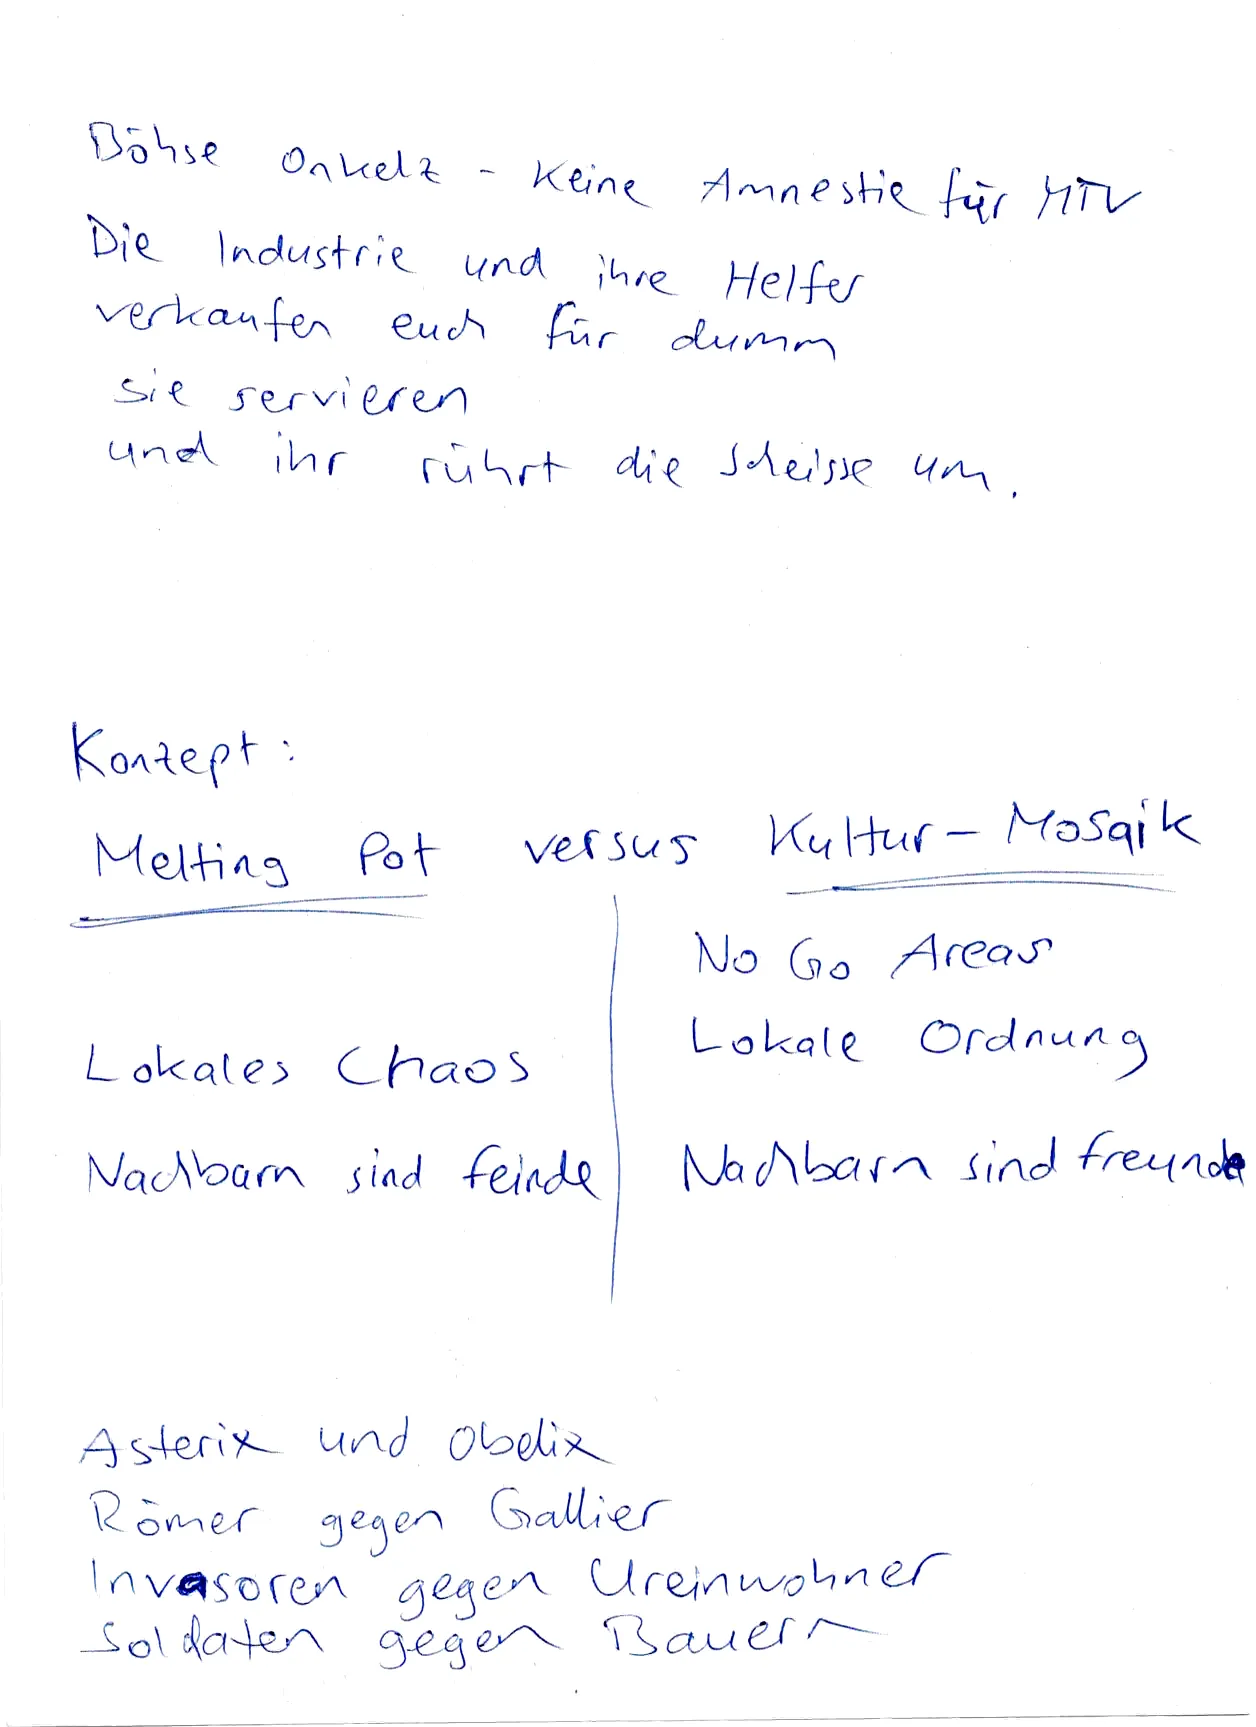 Böhse Onkelz - Keine Amnestie für MTV
Die Industrie und ihre Helfer
verkaufen euch für dumm
sie servieren
und ihr rührt die Scheisse um.
Konzept:
Melting Pot versus Kultur-Mosaik
No Go Areas
Lokales Chaos
Lokale Ordnung
Nachbarn sind Feinde
Nachbarn sind Freunde
Asterix und Obelix
Römer gegen Gallier
Invasoren gegen Ureinwohner
Soldaten gegen Bauern